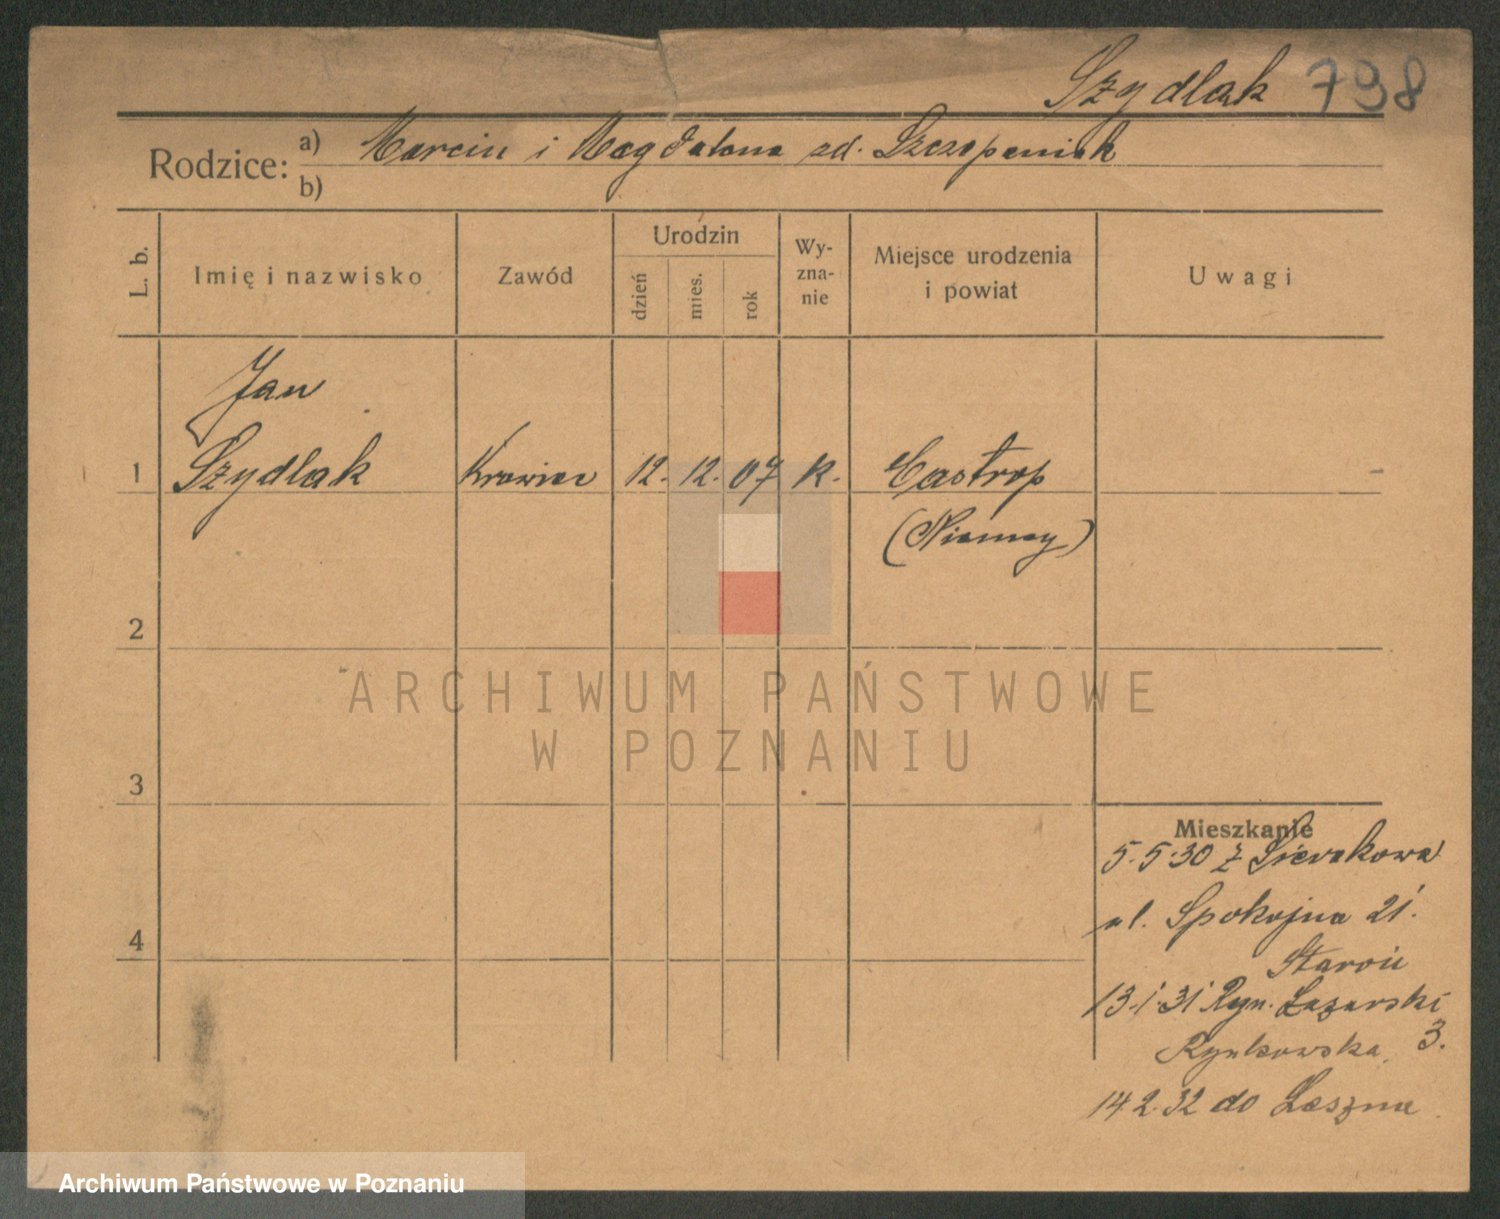 Szydlak 798
Rodzice: a) Marcin i Magdalena zd. Szczepaniak
b)
L. b.
Imię i nazwisko
Zawód
Urodzin
dzień
mies.
rok
Wy-
zna-
nie
Miejsce urodzenia
i powiat
Uwagi
Jan
1 Szydlak Krawiec 12. 12. 07 k. Castrop
(Niemcy)
2
3
4
Mieszkanie
5.5.30 z Sierakowa
ul. Spokojna 21.
13.1.31 Ryn. Łazarski
3.
14 2.32 do Leszna
ARCHIWUM PAŃSTWOWE
W POZNANIU
Archiwum Państwowe w Poznaniu